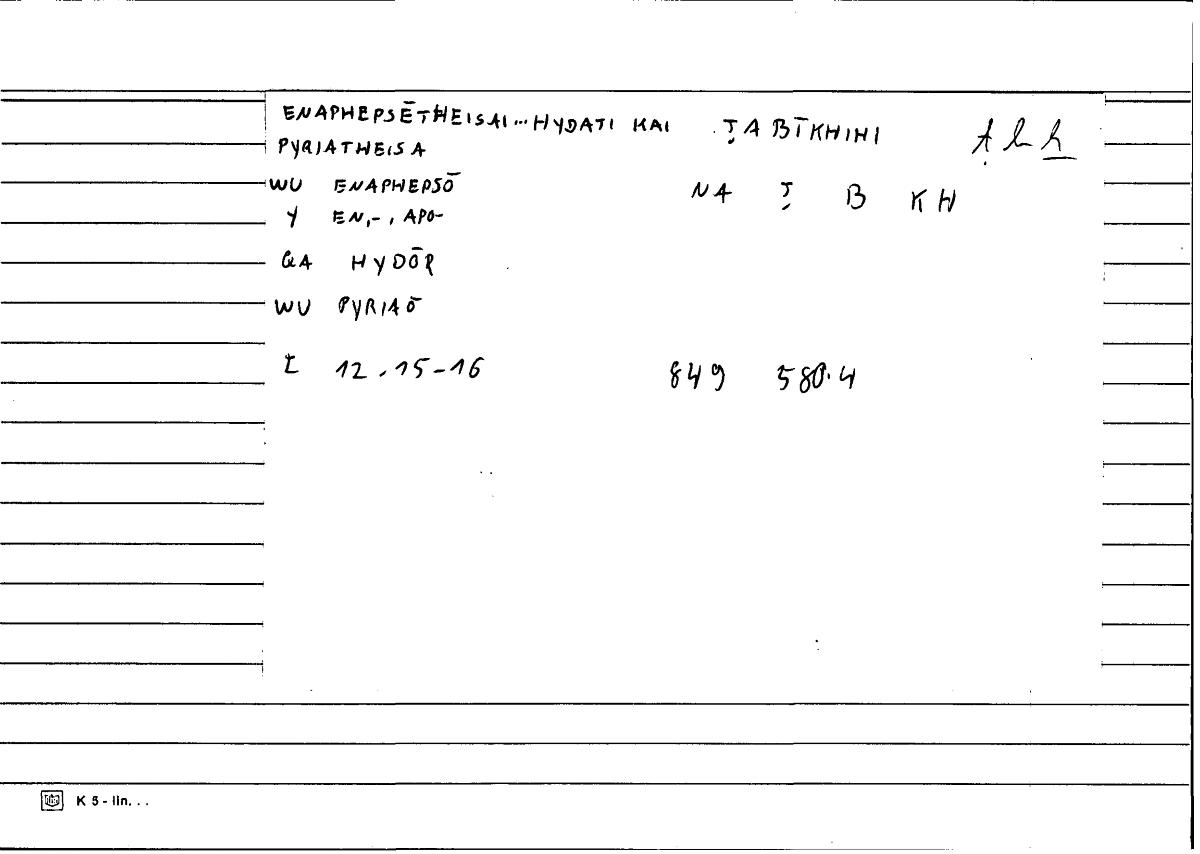 ENAPHEPSĒTHEISAI...HYDATI KAI ṬABĪKHIHI
PYRIATHEISA
WU ENAPHEPSŌ NA Ṭ B KH
Y EN,-, APO-
QA HYDŌR
WU PYRIAŌ
12.15-16 849 580.4
K 5 - lin. . .